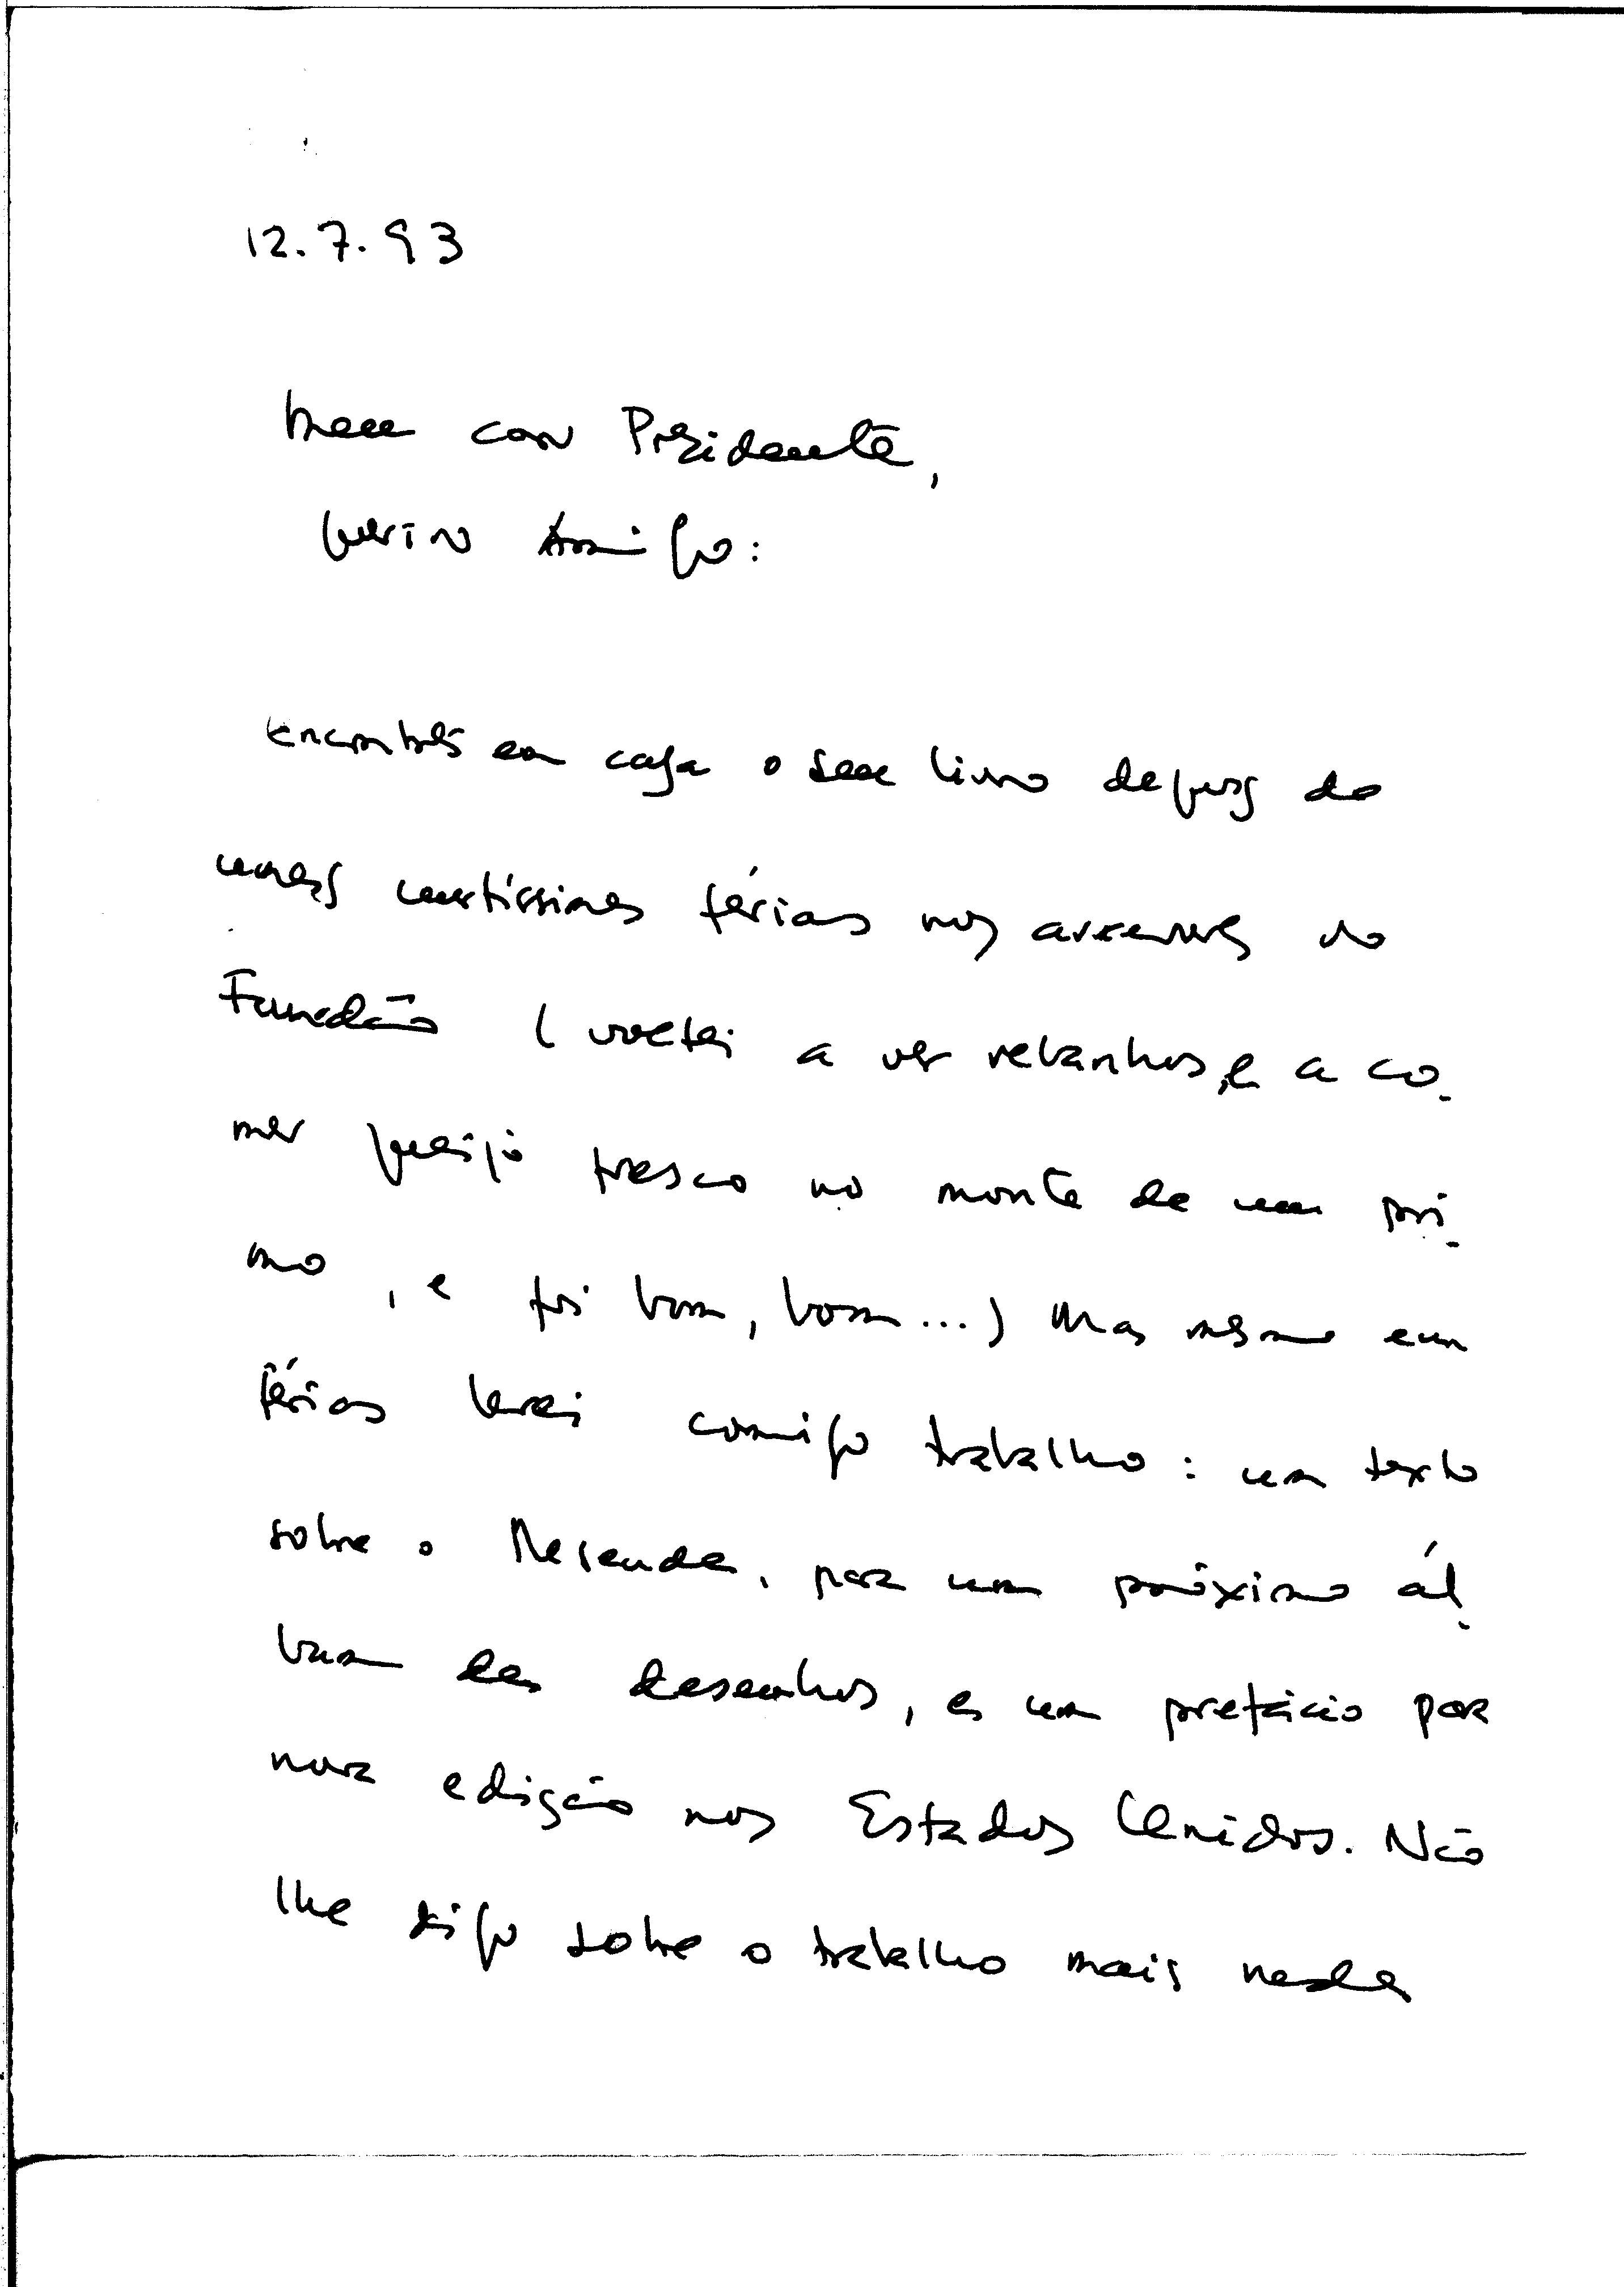 12.7.93
Meu caro Presidente,
querido Amigo:
Encontrei em casa o seu livro depois de
umas curtíssimas férias nos arredores do
Fundão (voltei a ver rebanhos, e a co-
mer queijo fresco no monte de um pri-
mo, e foi bom, bom...) Mas mesmo em
férias levei comigo trabalho: um texto
sobre o Resende, para um próximo ál-
bum de desenhos, e um prefácio para
nova edição nos Estados Unidos. Não
lhe digo sobre o trabalho mais nada